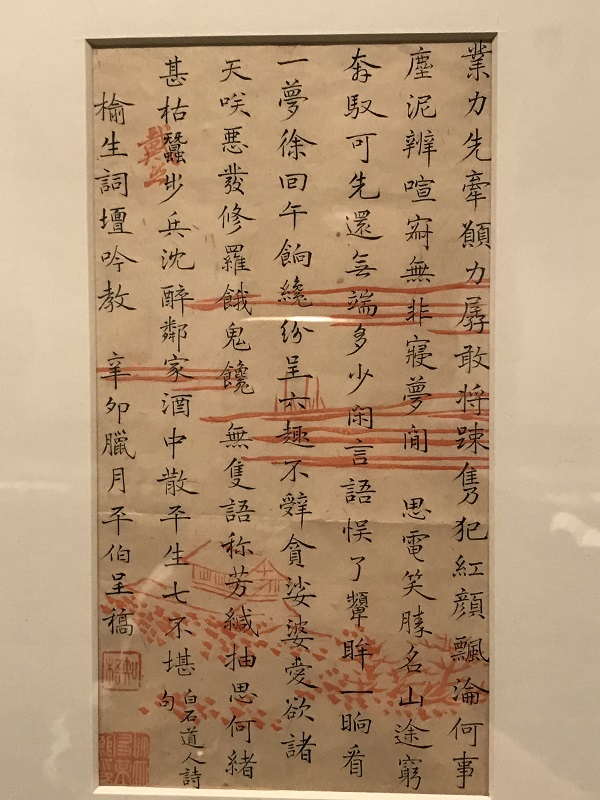 業力先牽願力孱敢將踈雋犯紅顏飄淪何事
塵泥辨喧寂無非寢夢間 思電笑勝名山途窮
奔馭可先還無端多少閑言語悮了顰眸一晌看
一夢徐回午餉纔紛呈六趣不辭貪娑婆愛欲諸
天唉惡發修羅餓鬼饞 無隻語称芳緘抽思何緒
甚枯蠶步兵沈醉鄰家酒中散平生七不堪 白石道人詩
句
榆生詞壇吟教 辛卯臘月平伯呈稿